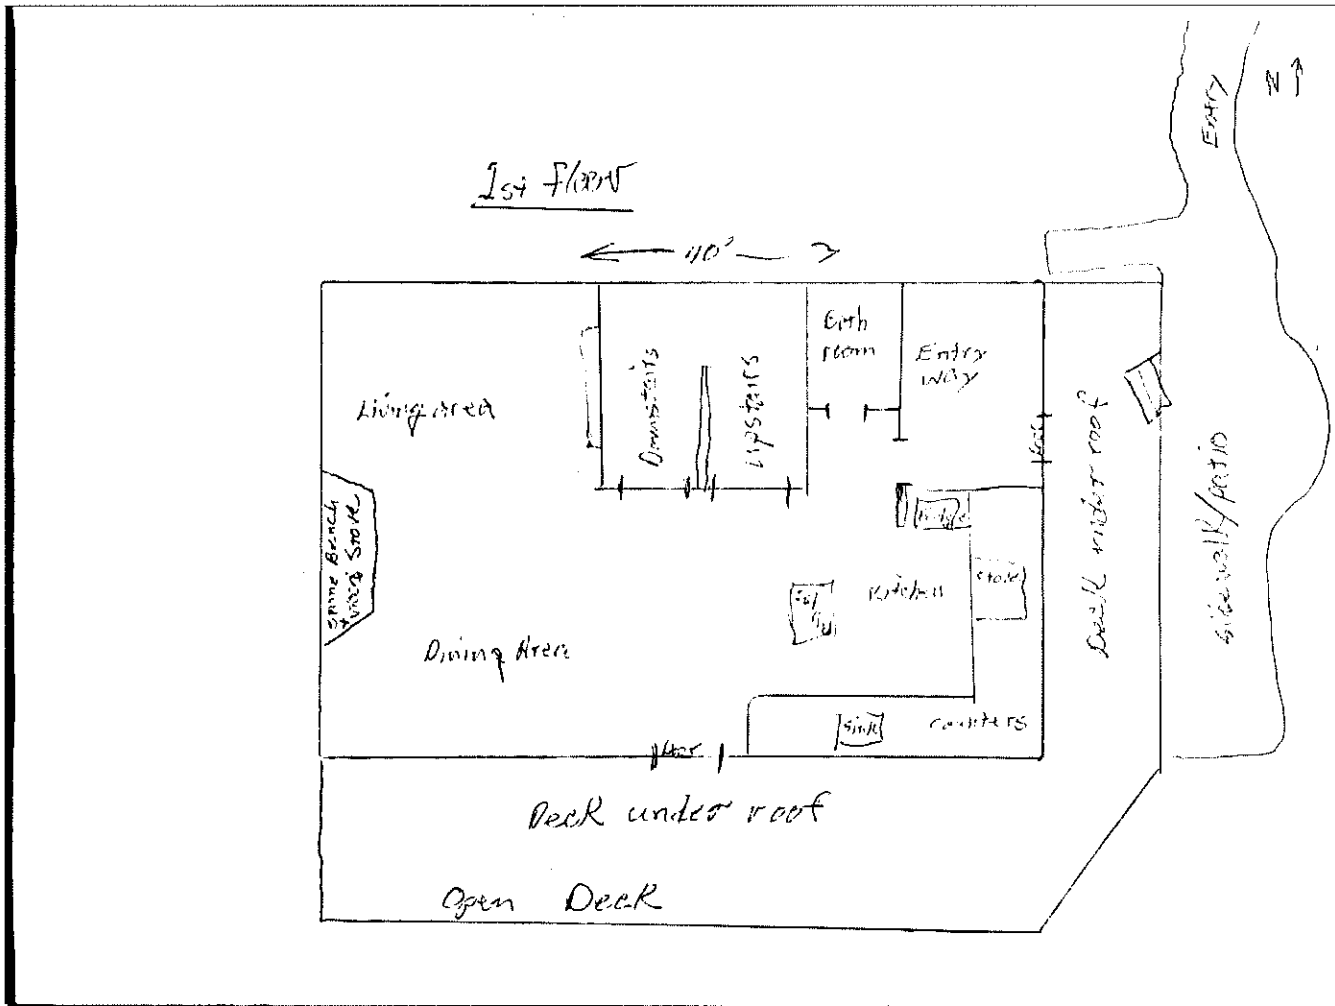 N
Entry
1st floor
40'
Bath
room
Entry
way
Living Area
Downstairs
Upstairs
door
Deck under roof
sidewalk/patio
fridge
Stone Bench
+ wood Stove
Kitchen
stove
Dining Area
sink
counters
door
Deck under roof
Open Deck